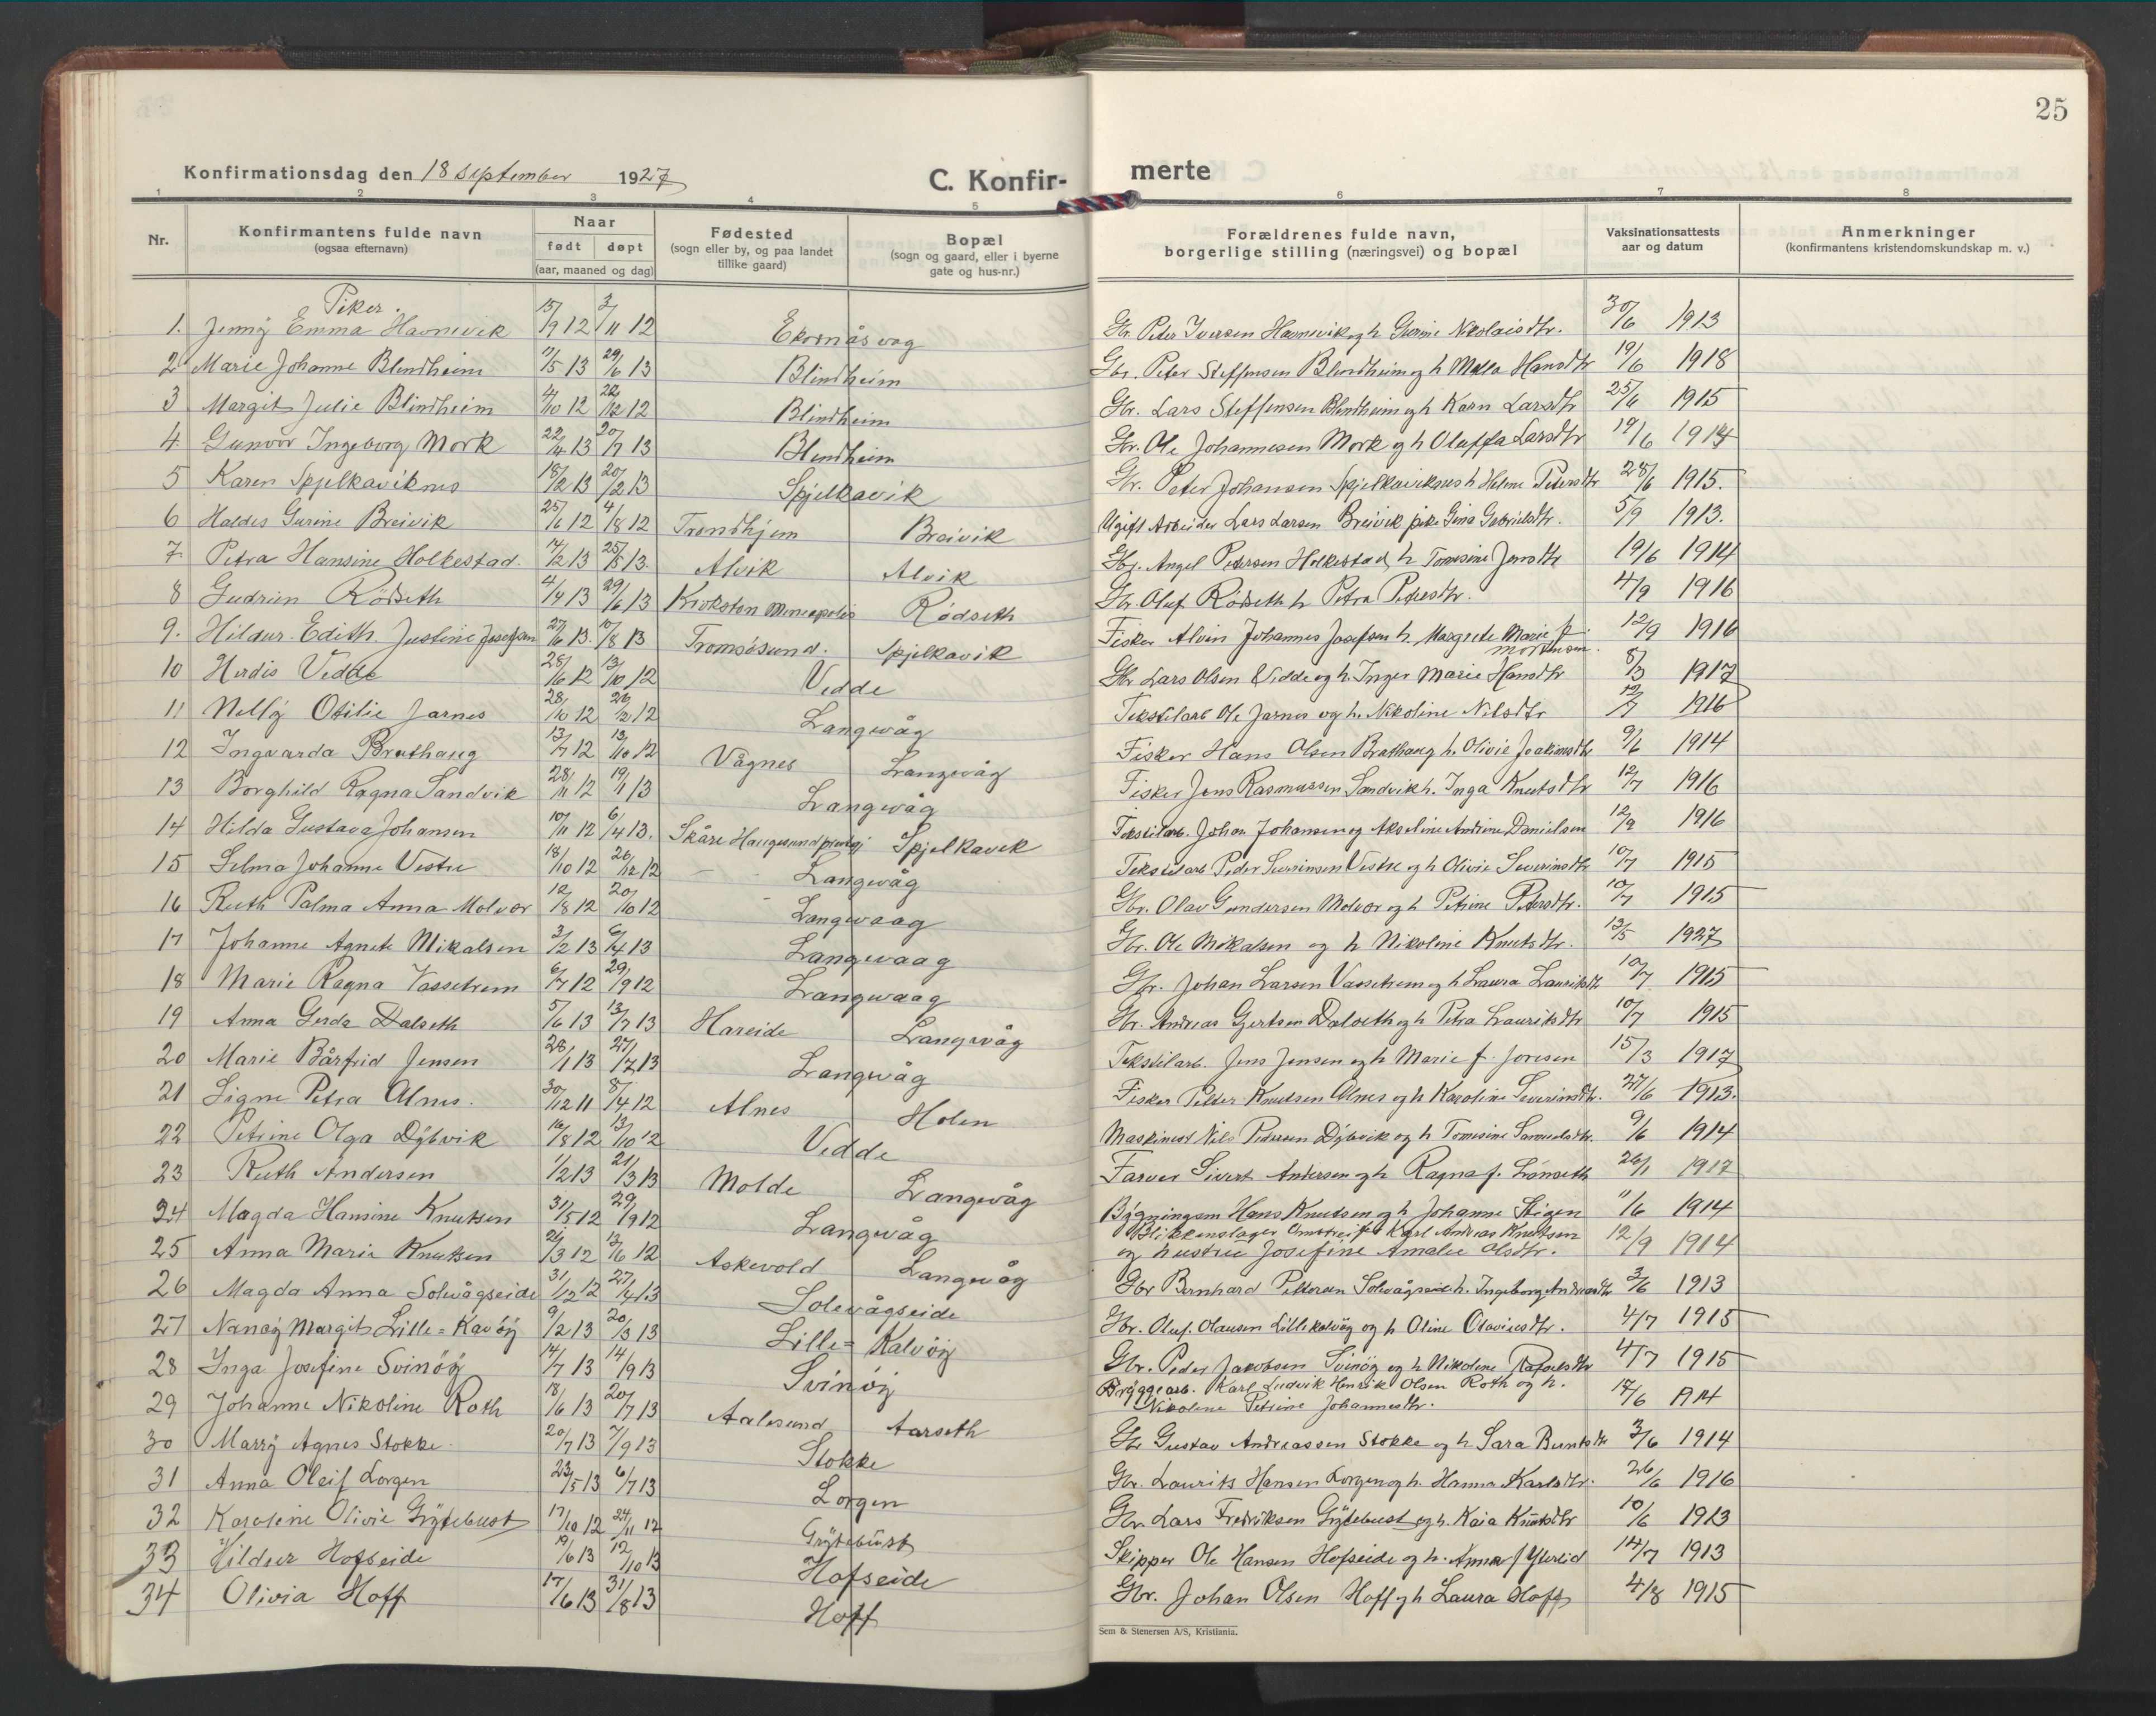 25
Konfirmationsdag den 18 september 1927
C. Konfir-
merte
1 2 3 4 5 6 7 8
Nr.
Konfirmantens fulde navn
(ogsaa efternavn)
Naar
født døpt
(aar, maaned og dag)
Fødested
(sogn eller by, og paa landet
tillike gaard)
Bopæl
(sogn og gaard, eller i byerne
gate og hus-nr.)
Forældrenes fulde navn,
borgerlige stilling (næringsvei) og bopæl
Vaksinationsattests
aar og datum
Anmerkninger
(konfirmantens kristendomskundskap m. v.)
Piker.
1. Jenny Emma Havnevik 15/9 12 3/11 12 Ekornåsvag Gbr. Peter Iversen Havnevik og h Gurine Nikolaisdtr. 30/6 1913
2 Marie Johanne Blindheim 11/5 13 29/6 13 Blindheim Gbr. Peter Steffensen Blindheim og h Malla Hansdtr 19/6 1918
3 Margit Julie Blindheim 4/10 12 22/12 12 Blindheim Gbr. Lars Steffensen Blindheim og h Karn Larsdtr 25/6 1915
4 Gunvor Ingeborg Mork 22/4 13 20/7 13 Blindheim Gbr. Ole Johannesen Mork og h Oluffa Larsdtr 19/6 1914
5 Karen Spjelkaviknes 18/2 13 20/2 13 Spjelkavik Gbr. Peter Johansen Spjelkaviknes h Helene Petersdtr 28/6 1915.
6 Haldis Gurine Breivik 25/6 12 4/8 12 Trondhjem Breivik Ugift Arbeider Lars Larsen Breivik pike Gina Gabrielsdtr. 5/9 1913.
7 Petra Hansine Holkestad. 14/2 13 25/8 13. Alvik Alvik Gbr. Angel Petersen Holkestad, h Tomine Jensdtr 19/6 1914
8 Gudrun Rödseth 4/4 13 29/6 13 Krokston Mineapolis Rödseth Gbr. Oluf Rödseth h Petra Petersdtr. 4/9 1916
9. Hildur Edith Justine Josefsen 27/6 13. 10/8 13 Tromsösund. Spjelkavik Fisker Alvin Johannes Josefsen h. Margrete Marie f. Mortensen. 12/9 1916
10 Herdis Vedde 28/6 12 13/10 12 Vedde Gbr Lars Olsen Vedde og h. Inger Marie Hansdtr 8/3 1917
11 Nelly Otilie Jarnes 28/10 12 26/12 12 Langevåg Tekstilarb Ole Jarnes og h. Nikoline Nilsdtr 12/7 1916
12 Ingvarda Brathaug 13/7 12 13/10 12 Vågnes Langevåg Fisker Hans Olsen Brathaug h. Olivie Joakimsdtr 9/6 1914
13 Borghild Ragna Sandvik 28/11 12 19/1 13 Langevåg Fisker Jens Rasmussen Sandvik h. Inga Knutsdtr 12/7 1916
14 Hilda Gustava Johansen 10/11 12 6/4 13. Skåre Haugesund prestgj Spjelkavik Tekstilarb. Johan Johansen og Akseline Andrine Danielsen 12/9 1916
15 Selma Johanne Vestre 18/10 12 26/12 12 Langevåg Tekstilarb Peder Severinsen Vestre og h Olivie Severinsdtr 10/7 1915
16 Ruth Palma Anna Molvær 12/8 12 20/10 12 Langevaag Gbr. Olav Gundersen Molvær og h Petrine Petersdtr. 10/7 1915
17 Johanne Agnete Mikalsen 3/2 13 6/4 13 Langevaag Gbr. Ole Mikalsen og h Nikoline Knutsdtr. 13/5 1927
18 Marie Ragna Vassetrem 6/7 12 29/9 12 Langevaag Gbr. Johan Larsen Vassetrem og h Laura Lauritsdtr 10/7 1915
19 Anna Gerda Dalseth 5/6 13 13/7 13 Hareide Langevåg Gbr. Andreas Gjertsen Dalseth og h Petra Lauritsdtr 10/7 1915
20 Marie Bårfrid Jensen 28/1 13 27/7 13 Langevåg Tekstilarb. Jens Jensen og h Marie f. Joresen 15/3 1917
21 Signe Petra Alnes. 30/12 11 8/4 12 Alnes Holen Fisker Petter Knutsen Alnes og h Karoline Severinsdtr. 27/6 1913.
22 Petrine Olga Dybvik 16/8 12 13/10 12 Vedde Maskinist Nils Pedersen Dybvik og h Tomine Samuelsdtr. 9/6 1914
23 Ruth Andersen 1/2 13 21/3 13 Molde Langevåg Farver Sivert Andersen og h Ragna f. Lönseth 26/1 1917
24 Magda Hansine Knutsen 31/5 12 29/9 12 Langevåg Bygningsm Hans Knutsen og h Johanne Stigen 11/6 1914
25 Anna Marie Knutsen 21/3 12 13/6 12 Askevold Langevåg Blikkenslager Omstreifer Karl Andreas Knutsen
og hustru Josefine Amalie Olsdtr. 12/9 1914
26 Magda Anna Solevågseide 31/12 12 27/4 13 Solevågseide Gbr Bernhard Pettersen Solevågseide h. Ingeborg Andreasdtr 3/6 1913
27 Nancy Margit Lille=Kavöy 9/2 13 20/3 13 Lille=Kalvöy Gbr. Oluf. Olausen Lillekalvöy og h Oline Olaviusdtr. 4/7 1915
28 Inga Josefine Svinöy 14/7 13 14/9 13 Svinöy Gbr. Peder Jakobsen Svinöy og h Nikoline Rafaelsdtr 4/7 1915
29 Johanne Nikoline Roth 18/6 13 20/7 13 Aalesund Aarseth Bryggearb. Karl Ludvik Henrik Olsen Roth og h.
Nikoline Petrine Johannesdtr. 17/6 1914
30 Marry Agnes Stokke 20/7 13 7/9 13 Stokke Gbr Gustav Andreassen Stokke og h Sara Berntsdtr 3/6 1914
31 Anna Oleif Lorgen 23/5 13 6/7 13 Lorgen Gbr. Laurits Hansen Lorgen og h. Hanna Karlsdtr. 26/6 1916
32 Karoline Olivie Grytebust 17/10 12 24/11 12 Grytebust Gbr. Lars Fredriksen Grytebust og h. Kaia Knutsdtr 10/6 1913
33 Hildur Hofseide 19/6 13 12/10 13 Hofseide Skipper Ole Hansen Hofseide og h. Anna f Ytterlid 14/7 1913
34 Olivia Hoff 17/6 13 31/8 13 Hoff Gbr. Johan Olsen Hoff og h Laura Hoff 4/8 1915
Sem & Stenersen A/S, Kristiania.